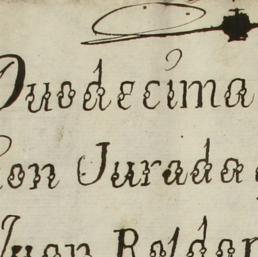 Duodecima
con Jurada
Juan Roldan